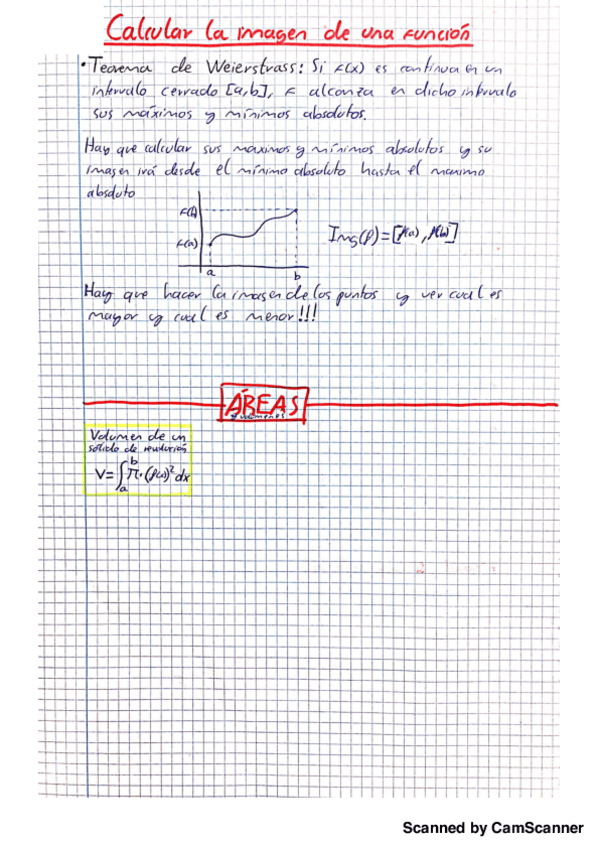 Calcular la imagen de una función
• Teorema de Weierstrass: Si F(x) es continua en un
intervalo cerrado [a,b], F alcanza en dicho intervalo
sus máximos y mínimos absolutos.
Hay que calcular sus maximos y mínimos absolutos y su
imagen irá desde el mínimo absoluto hasta el maximo
absoluto
F(b)
F(a)
a
b
Img(f)=[f(a), f(b)]
Hay que hacer la imagen de los puntos y ver cual es
mayor y cual es menor!!!
ÁREAS
y volúmenes
Volumen de un
sólido de revolución
V=∫ₐᵇ π·(f(x))² dx
Scanned by CamScanner